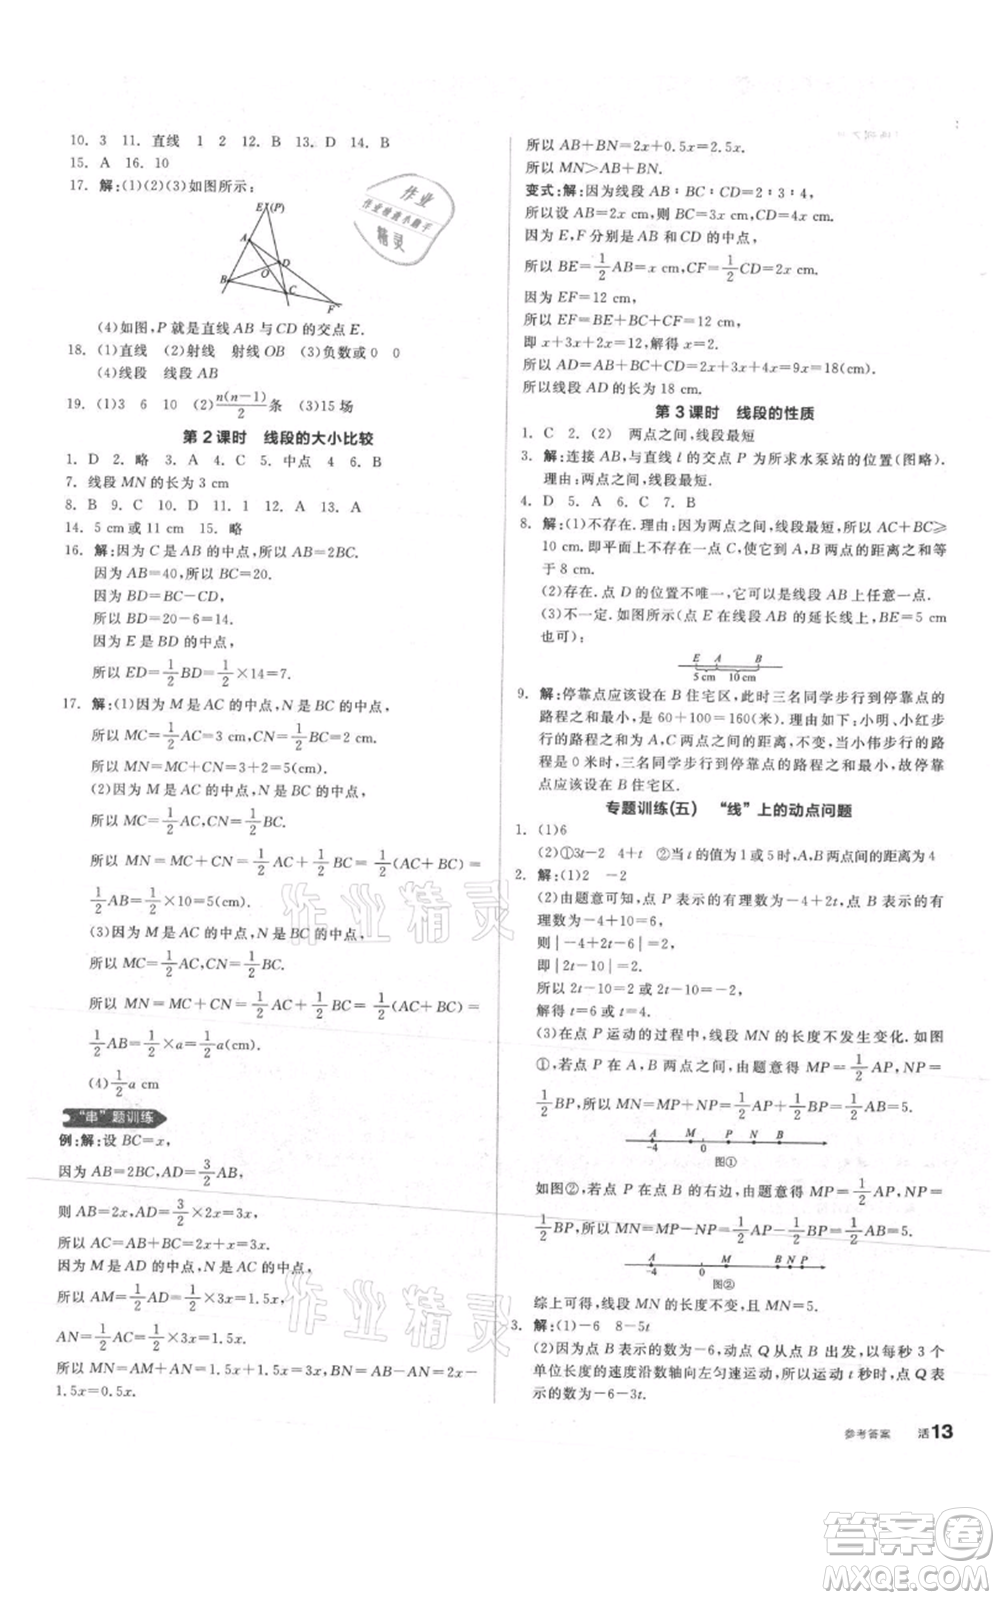 10. 3 11. 直线 1 2 12. B 13. D 14. B
15. A 16. 10
17. 解:(1)(2)(3)如图所示:
E (P)
A
D
O
B
C
F
(4)如图,P 就是直线 AB 与 CD 的交点 E.
18. (1)直线 (2)射线 射线 OB (3)负数或 0 0
(4)线段 线段 AB
19. (1)3 6 10 (2)n(n−1)/2 条 (3)15 场
第 2 课时 线段的大小比较
1. D 2. 略 3. A 4. C 5. 中点 4 6. B
7. 线段 MN 的长为 3 cm
8. B 9. C 10. D 11. 1 12. A 13. A
14. 5 cm 或 11 cm 15. 略
16. 解:因为 C 是 AB 的中点,所以 AB=2BC.
因为 AB=40,所以 BC=20.
因为 BD=BC−CD,
所以 BD=20−6=14.
因为 E 是 BD 的中点,
所以 ED=1/2 BD=1/2×14=7.
17. 解:(1)因为 M 是 AC 的中点,N 是 BC 的中点,
所以 MC=1/2 AC=3 cm,CN=1/2 BC=2 cm.
所以 MN=MC+CN=3+2=5(cm).
(2)因为 M 是 AC 的中点,N 是 BC 的中点,
所以 MC=1/2 AC,CN=1/2 BC.
所以 MN=MC+CN=1/2 AC+1/2 BC=1/2(AC+BC)=
1/2 AB=1/2×10=5(cm).
(3)因为 M 是 AC 的中点,N 是 BC 的中点,
所以 MC=1/2 AC,CN=1/2 BC.
所以 MN=MC+CN=1/2 AC+1/2 BC=1/2(AC+BC)=
1/2 AB=1/2×a=1/2 a(cm).
(4)1/2 a cm
“串”题训练
例:解:设 BC=x,
因为 AB=2BC,AD=3/2 AB,
则 AB=2x,AD=3/2×2x=3x,
所以 AC=AB+BC=2x+x=3x.
因为 M 是 AD 的中点,N 是 AC 的中点,
所以 AM=1/2 AD=1/2×3x=1.5x,
AN=1/2 AC=1/2×3x=1.5x.
所以 MN=AM+AN=1.5x+1.5x=3x,BN=AB−AN=2x−
1.5x=0.5x.
所以 AB+BN=2x+0.5x=2.5x.
所以 MN>AB+BN.
变式:解:因为线段 AB∶BC∶CD=2∶3∶4,
所以设 AB=2x cm,则 BC=3x cm,CD=4x cm.
因为 E,F 分别是 AB 与 CD 的中点,
所以 BE=1/2 AB=x cm,CF=1/2 CD=2x cm.
因为 EF=12 cm,
所以 EF=BE+BC+CF=12 cm,
即 x+3x+2x=12,解得 x=2.
所以 AD=AB+BC+CD=2x+3x+4x=9x=18 cm.
所以线段 AD 的长为 18 cm.
第 3 课时 线段的性质
1. C 2. (2) 两点之间,线段最短
3. 解:连接 AB,与直线 l 的交点 P 为所求水泵站的位置(图略).
理由:两点之间,线段最短.
4. D 5. A 6. C 7. B
8. 解:(1)不存在.理由:因为两点之间,线段最短,所以 AC+BC⩾
10 cm.即平面上不存在一点 C,使 A,B 两点的距离的和等
于 8 cm.
(2)存在.点 D 的位置不唯一,是线段 AB 上任意一点.
(3)不一定.如图所示(点 E 在线段 AB 的延长线上,BE=5 cm
也可):
E A B
5 cm 10 cm
9. 解:停靠点应该设在 B 住宅区,此时三名同学步行到停靠点的
路程之和最小,是 60+100=160(米).理由如下:小明、小红步
行的路程之和为 A,C 两点之间的距离,不变,当小伟步行的路
程是 0 米时,三名同学步行到停靠点的路程之和最小,故停靠
点应该设在 B 住宅区.
专题训练(五) “线”上的动点问题
1. (1)6
(2)①3t−2 4+t ②当 t 的值为 1 或 5 时,A,B 两点间的距离为 4
2. 解:(1)2 −2
(2)由题意可知,点 P 表示的有理数为−4+2t,点 B 表示的有
理数为−4+10=6,
则|−4+2t−6|=6,
即|2t−10|=6.
所以 2t−10=2 或 2t−10=−2,
解得 t=6 或 t=4.
(3)在点 P 运动的过程中,线段 MN 的长度不发生变化.如图
①,若点 P 在 A,B 两点之间,由题意得 MP=1/2 AP,NP=
1/2 BP,所以 MN=MP+NP=1/2 AP+1/2 BP=1/2 AB=5.
A M P N B
−4 0
图①
如图②,若点 P 在点 B 的右边,由题意得 MP=1/2 AP,NP=
1/2 BP,所以 MN=MP−NP=1/2 AP−1/2 BP=1/2 AB=5.
A M B N P
−4 0
图②
综上可得,线段 MN 的长度不变,且 MN=5.
3. 解:(1)−6 8−5t
(2)因为点 B 表示的数为−6,动点 Q 从点 B 出发,以每秒 3 个
单位长度的速度沿数轴向左匀速运动,所以运动 t 秒时,点 Q 表
示的数为−6−3t.
参考答案 活13
作业
作业检查小助手
精灵
作业精灵
作业精灵
答案卷
MXQE.COM